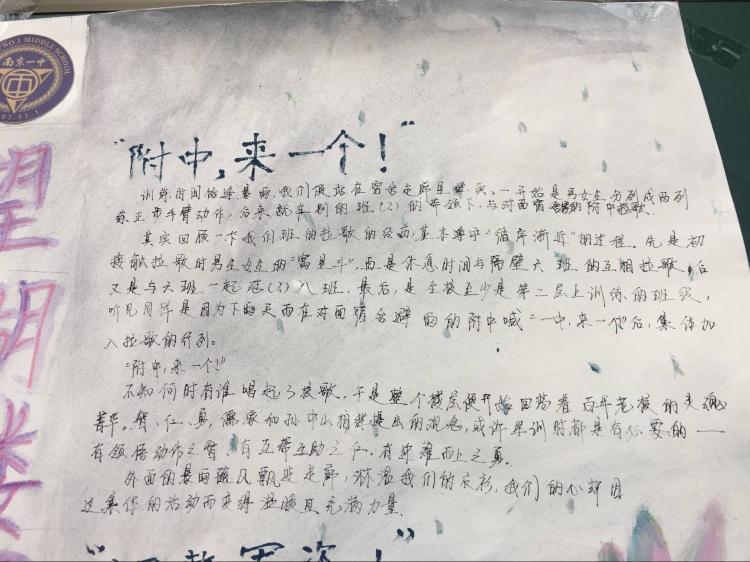 NO.1 MIDDLE SCHOOL
南京一中
1907.11.1
望
湖
楼
“附中,来一个!”
训练时间恰逢暴雨,我们便站在宿舍走廊里。一开始是男女生分列成两列
练正步手臂动作,后来就在别的班(2)的带领下,与对面宿舍的附中拉歌。
其实回顾一下我们班的拉歌的经历,基本遵守“循序渐近”的过程。先是初
接触拉歌时男生女生的“窝里斗”,而是休息时间与隔壁六班的互相拉歌,后
又是与六班一起怼(2)八班。最后,是全楼至少是第二层上训练的班级,
听见同样是因为下雨天而在对面宿舍避雨的附中喊“一中,来一个”后,集体加
入拉歌的行列。
“附中,来一个!”
不知何时有谁唱起了校歌,于是整个楼层便开始回荡着百年老校的灵魂
菁华。智、仁、勇,儒家和孙中山相继提出的观念,或许军训时都是有必要的——
有领悟动作之智,有互帮互助之仁,有迎难而上之勇。
外面的暴雨随风飘进走廊,淋湿我们的衣衫,我们的心却因
这集体的活动而变得温暖且充满力量.